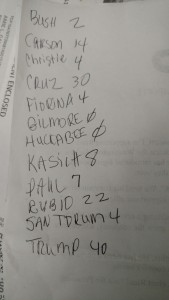 BUSH 2
CARSON 14
Christie 4
CRUZ 30
FIORINA 4
GILMORE 0
HUCKABEE 0
KASICH 8
PAUL 7
RUBIO 22
SANTORUM 4
TRUMP 40
ENCLOSED